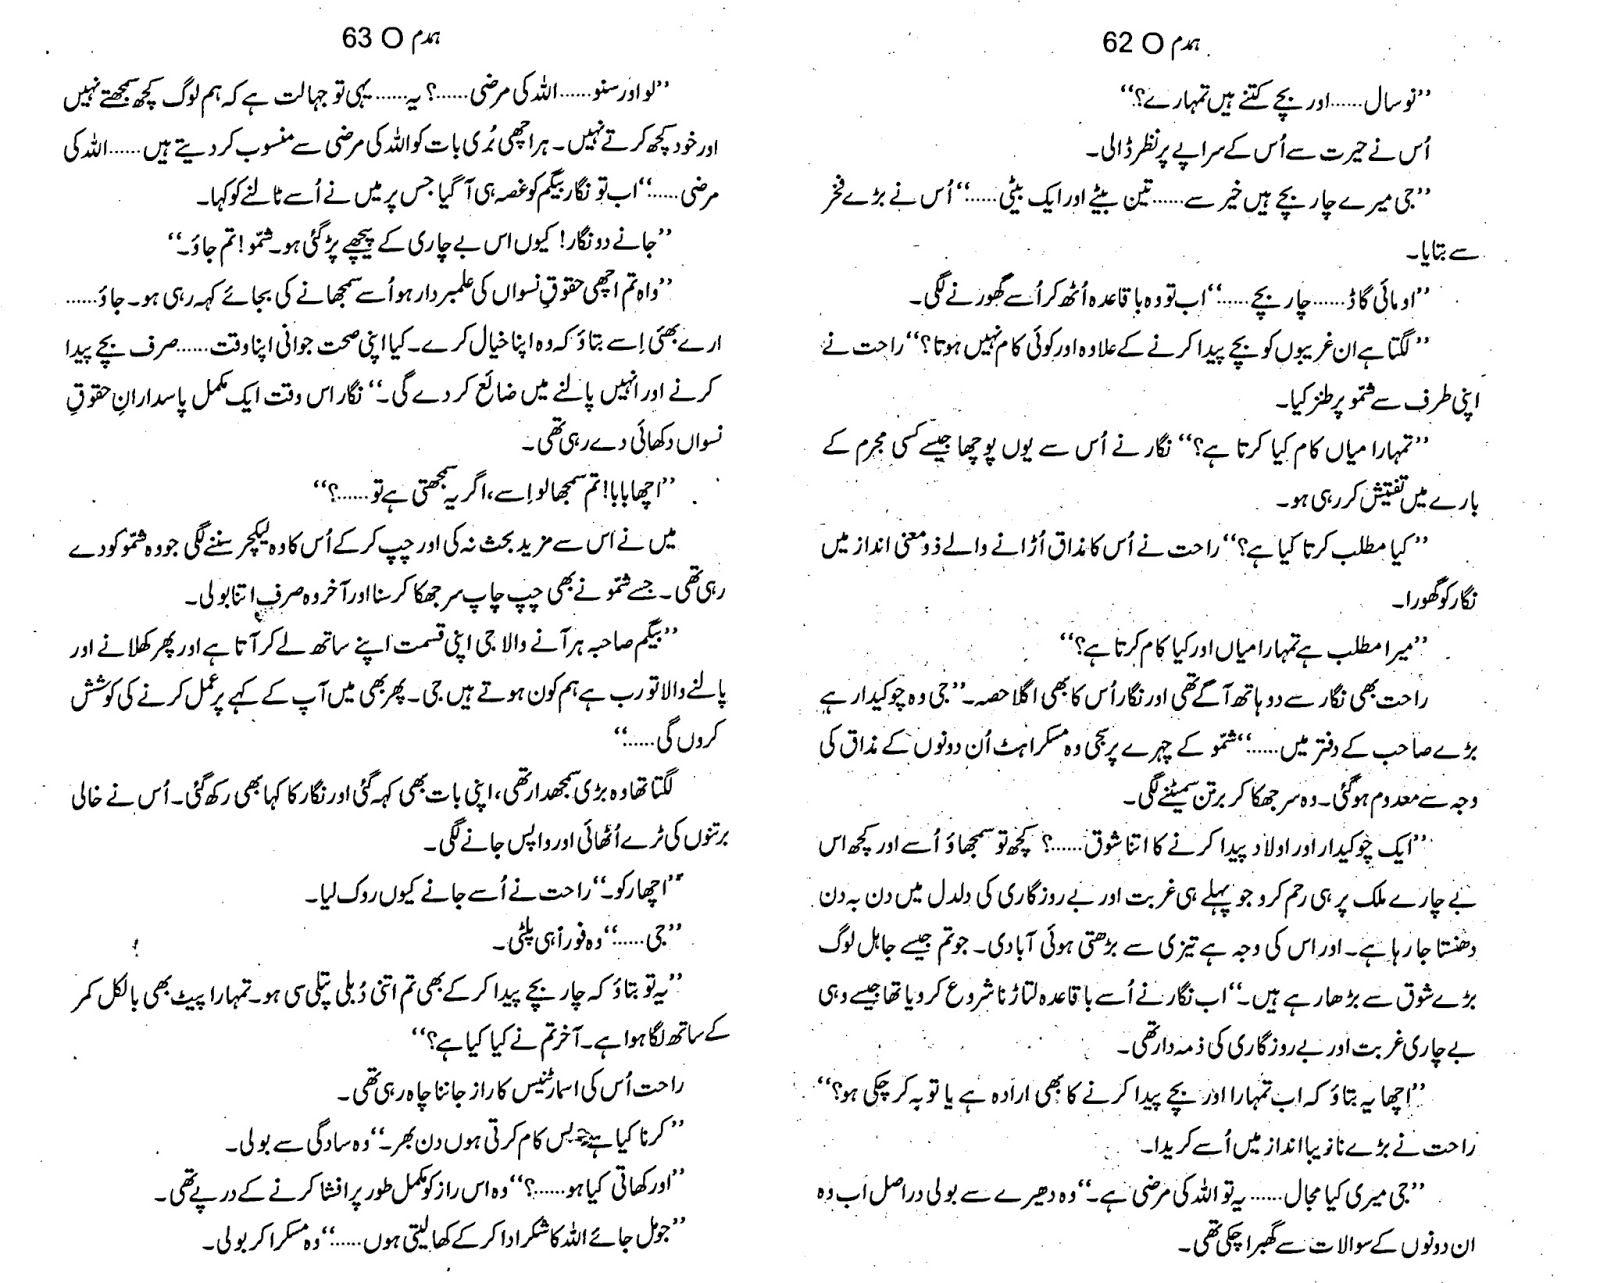 ہمدم O 62
’’نو سال......اور بچے کتنے ہیں تمہارے؟‘‘
اُس نے حیرت سے اُس کے سراپے پر نظر ڈالی۔
’’جی میرے چار بچے ہیں خیر سے......تین بیٹے اور ایک بیٹی......‘‘ اُس نے بڑے فخر
سے بتایا۔
’’او مائی گاڈ......چار بچے......‘‘ اب تو وہ باقاعدہ اُٹھ کر اُسے گھورنے لگی۔
’’لگتا ہے ان غریبوں کو بچے پیدا کرنے کے علاوہ اور کوئی کام نہیں ہوتا؟‘‘ راحت نے
اپنی طرف سے شمّو پر طنز کیا۔
’’تمہارا میاں کام کیا کرتا ہے؟‘‘ نگار نے اُس سے یوں پوچھا جیسے کسی مجرم کے
بارے میں تفتیش کر رہی ہو۔
’’کیا مطلب کرتا کیا ہے؟‘‘ راحت نے اُس کا مذاق اُڑانے والے ذو معنی انداز میں
نگار کو گھورا۔
’’میرا مطلب ہے تمہارا میاں اور کیا کام کرتا ہے؟‘‘
راحت بھی نگار سے دو ہاتھ آگے تھی اور نگار اُس کا بھی اگلا حصہ۔ ’’جی وہ چوکیدار ہے
بڑے صاحب کے دفتر میں......‘‘ شمّو کے چہرے پر سجی وہ مسکراہٹ اُن دونوں کے مذاق کی
وجہ سے معدوم ہو گئی۔ وہ سر جھکا کر برتن سمیٹنے لگی۔
’’ایک چوکیدار اور اولاد پیدا کرنے کا اتنا شوق......؟ کچھ تو سمجھاؤ اُسے اور کچھ اس
بے چارے ملک پر ہی رحم کرو جو پہلے ہی غربت اور بے روزگاری کی دلدل میں دن بہ دن
دھنستا جا رہا ہے۔ اور اس کی وجہ ہے تیزی سے بڑھتی ہوئی آبادی۔ جو تم جیسے جاہل لوگ
بڑے شوق سے بڑھا رہے ہیں۔‘‘ اب نگار نے اُسے باقاعدہ لتاڑنا شروع کر دیا تھا جیسے وہی
بے چاری غربت اور بے روزگاری کی ذمہ دار تھی۔
’’اچھا یہ بتاؤ کہ اب تمہارا اور بچے پیدا کرنے کا بھی ارادہ ہے یا توبہ کر چکی ہو؟‘‘
راحت نے بڑے نازیبا انداز میں اُسے کریدا۔
’’جی میری کیا مجال......یہ تو اللہ کی مرضی ہے۔‘‘ وہ دھیرے سے بولی دراصل اب وہ
ان دونوں کے سوالات سے گھبرا چکی تھی۔
ہمدم O 63
’’لو اور سنو......اللہ کی مرضی......؟ یہ......یہی تو جہالت ہے کہ ہم لوگ کچھ سمجھتے نہیں
اور خود کچھ کرتے نہیں۔ ہر اچھی بُری بات کو اللہ کی مرضی سے منسوب کر دیتے ہیں......اللہ کی
مرضی......‘‘ اب تو نگار بیگم کو غصہ ہی آ گیا جس پر میں نے اُسے ٹالنے کو کہا۔
’’جانے دو نگار! کیوں اس بے چاری کے پیچھے پڑ گئی ہو۔ شمّو! تم جاؤ۔‘‘
’’واہ تم اچھی حقوقِ نسواں کی علمبردار ہو اُسے سمجھانے کی بجائے کہہ رہی ہو۔ جاؤ......
ارے بھئی اِسے بتاؤ کہ وہ اپنا خیال کرے۔ کیا اپنی صحت جوانی اپنا وقت......صرف بچے پیدا
کرنے اور انہیں پالنے میں ضائع کر دے گی۔‘‘ نگار اس وقت ایک مکمل پاسدارانِ حقوقِ
نسواں دکھائی دے رہی تھی۔
’’اچھا بابا! تم سمجھا لو اِسے، اگر یہ سمجھتی ہے تو......؟‘‘
میں نے اس سے مزید بحث نہ کی اور چپ کر کے اُس کا وہ لیکچر سننے لگی جو وہ شمّو کو دے
رہی تھی۔ جسے شمّو نے بھی چپ چاپ سر جھکا کر سنا اور آخر وہ صرف اتنا بولی۔
’’بیگم صاحبہ ہر آنے والا جی اپنی قسمت اپنے ساتھ لے کر آتا ہے اور پھر کھلانے اور
پالنے والا تو رب ہے ہم کون ہوتے ہیں جی۔ پھر بھی میں آپ کے کہے پر عمل کرنے کی کوشش
کروں گی......‘‘
لگتا تھا وہ بڑی سمجھدار تھی، اپنی بات بھی کہہ گئی اور نگار کا کہا بھی رکھ گئی۔ اُس نے خالی
برتنوں کی ٹرے اُٹھائی اور واپس جانے لگی۔
’’اچھا رکو۔‘‘ راحت نے اُسے جانے کیوں روک لیا۔
’’جی......‘‘ وہ فوراً ہی پلٹی۔
’’یہ تو بتاؤ کہ چار بچے پیدا کر کے بھی تم اتنی دُبلی پتلی سی ہو۔ تمہارا پیٹ بھی بالکل کمر
کے ساتھ لگا ہوا ہے۔ آخر تم نے کیا کیا ہے؟‘‘
راحت اُس کی اسمارٹنیس کا راز جاننا چاہ رہی تھی۔
’’کرنا کیا ہے بس کام کرتی ہوں دن بھر۔‘‘ وہ سادگی سے بولی۔
’’اور کھاتی کیا ہو......؟‘‘ وہ اس راز کو مکمل طور پر افشا کرنے کے درپے تھی۔
’’جو مل جائے اللہ کا شکر ادا کر کے کھا لیتی ہوں......‘‘ وہ مسکرا کر بولی۔